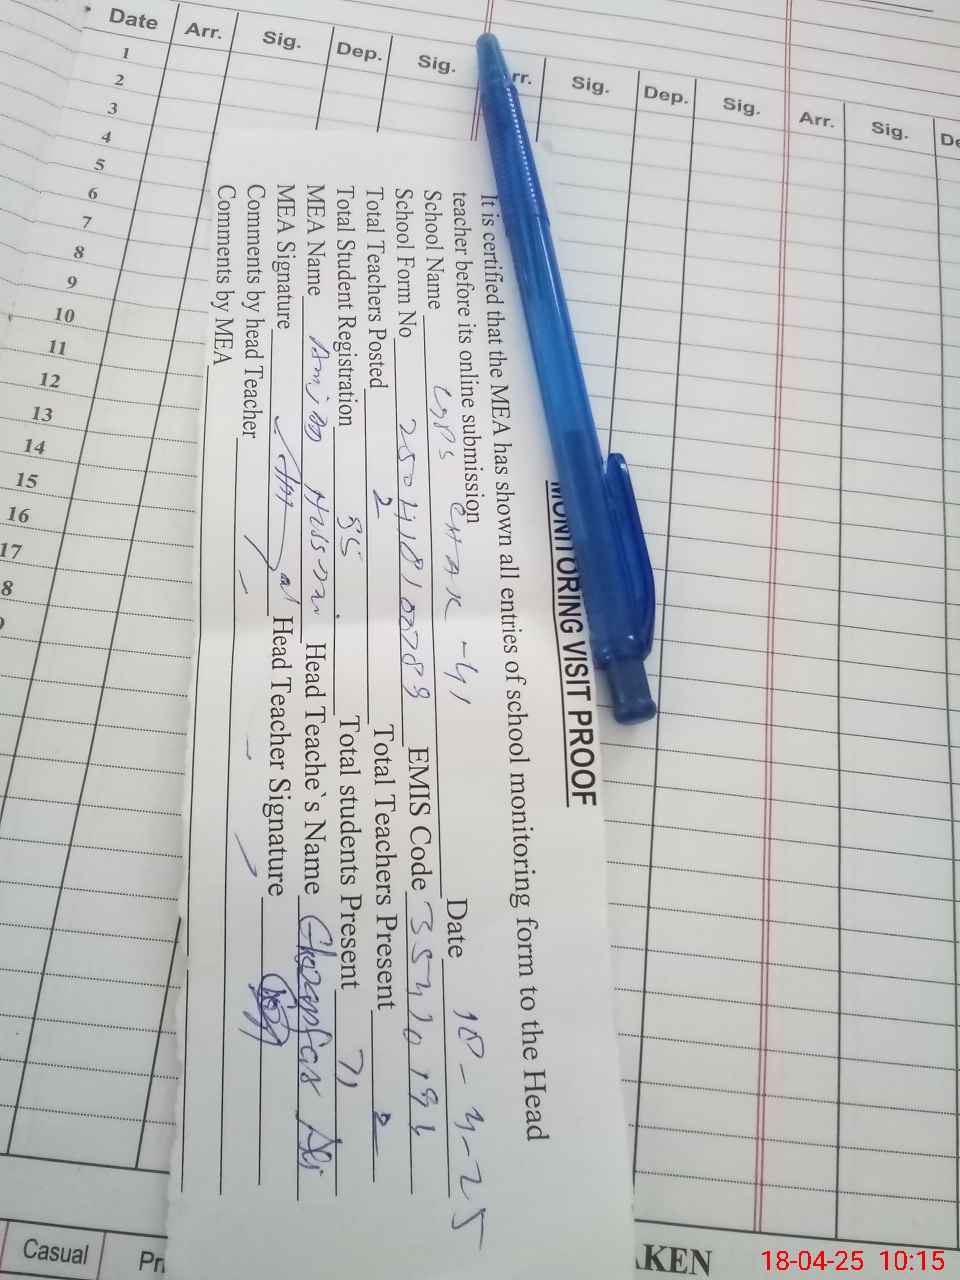 Date Arr. Sig. Dep. Sig. rr. Sig. Dep. Sig. Arr. Sig. De
1
2
3
4
5
6
7
8
9
10
11
12
13
14
15
16
17
8
MONITORING VISIT PROOF
It is certified that the MEA has shown all entries of school monitoring form to the Head
teacher before its online submission
School Name GPS CHAK - 41 Date 18-4-25
School Form No EMIS Code
Total Teachers Posted 2 Total Teachers Present 2
Total Student Registration 85 Total students Present 71
MEA Name Head Teache`s Name Ghazanfar Ali
MEA Signature Head Teacher Signature
Comments by head Teacher
Comments by MEA
Casual Pri AKEN
18-04-25 10:15